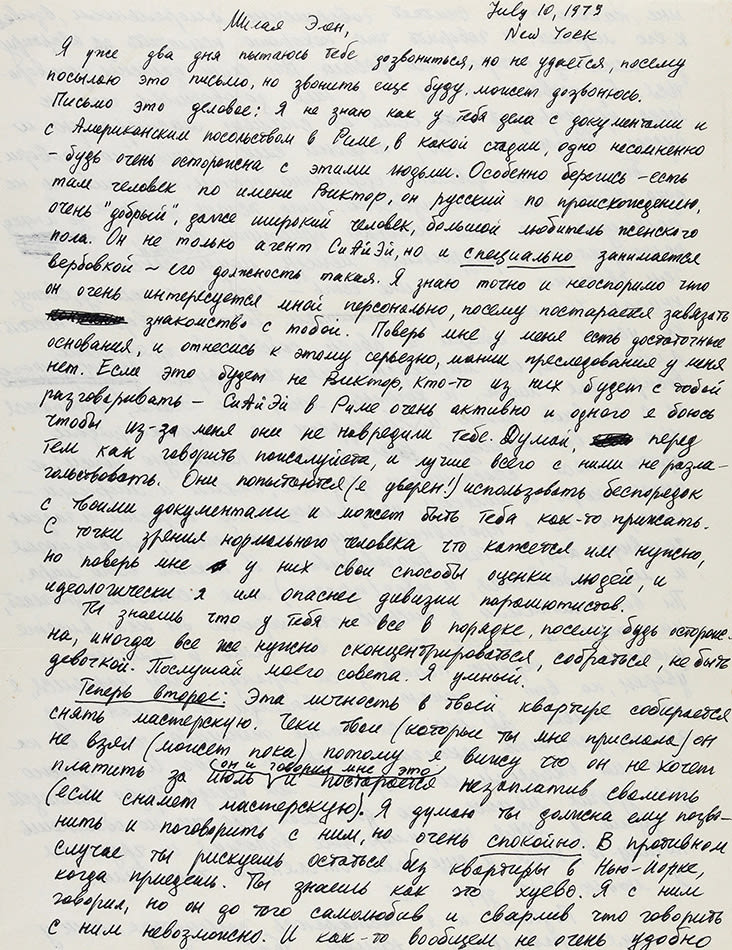 July 10, 1979
New York
Милая Элен,
Я уже два дня пытаюсь тебе дозвониться, но не удается, посему
посылаю это письмо, но звонить еще буду, может дозвонюсь.
Письмо это деловое: Я не знаю как у тебя дела с документами и
с Американским посольством в Риме, в какой стадии, одно несомненно
– будь очень осторожна с этими людьми. Особенно берегись – есть
там человек по имени Виктор, он русский по происхождению,
очень "добрый", даже широкий человек, большой любитель женского
пола. Он не только агент СиАйЭй, но и специально занимается
вербовкой – его должность такая. Я знаю точно и неоспоримо что
он очень интересуется мной персонально, посему постарается завязать
знакомство с тобой. Поверь мне у меня есть достаточные
основания, и отнесись к этому серьезно, мании преследования у меня
нет. Если это будет не Виктор, кто-то из них будет с тобой
разговаривать – СиАйЭй в Риме очень активно и одного я боюсь
чтобы из-за меня они не навредили тебе. Думай, перед
тем как говорить пожалуйста, и лучше всего с ними не разгла-
гольствовать. Они попытаются (я уверен!) использовать беспорядок
с твоими документами и может быть тебя как-то прижать.
С точки зрения нормального человека что кажется им нужно,
но поверь мне у них свои способы оценки людей, и
идеологически я им опаснее дивизии парашютистов.
Ты знаешь что у тебя не все в порядке, посему будь осторож-
на, иногда все же нужно сконцентрироваться, собраться, не быть
девочкой. Послушай моего совета. Я умный.
Теперь второе: Эта личность в твоей квартире собирается
снять мастерскую. Чеки твои (которые ты мне прислала) он
не взял (может пока) потому я вижу что он не хочет
платить за июль (он и говорил мне это) и постарается незаплатив свалить
(если снимет мастерскую). Я думаю ты должна ему позво-
нить и поговорить с ним, но очень спокойно. В противном
случае ты рискуешь остаться без квартиры в Нью-Йорке,
когда приедешь. Ты знаешь как это хуево. Я с ним
говорил, но он до того самолюбив и сварлив что говорить
с ним невозможно. И как-то вообщем не очень удобно